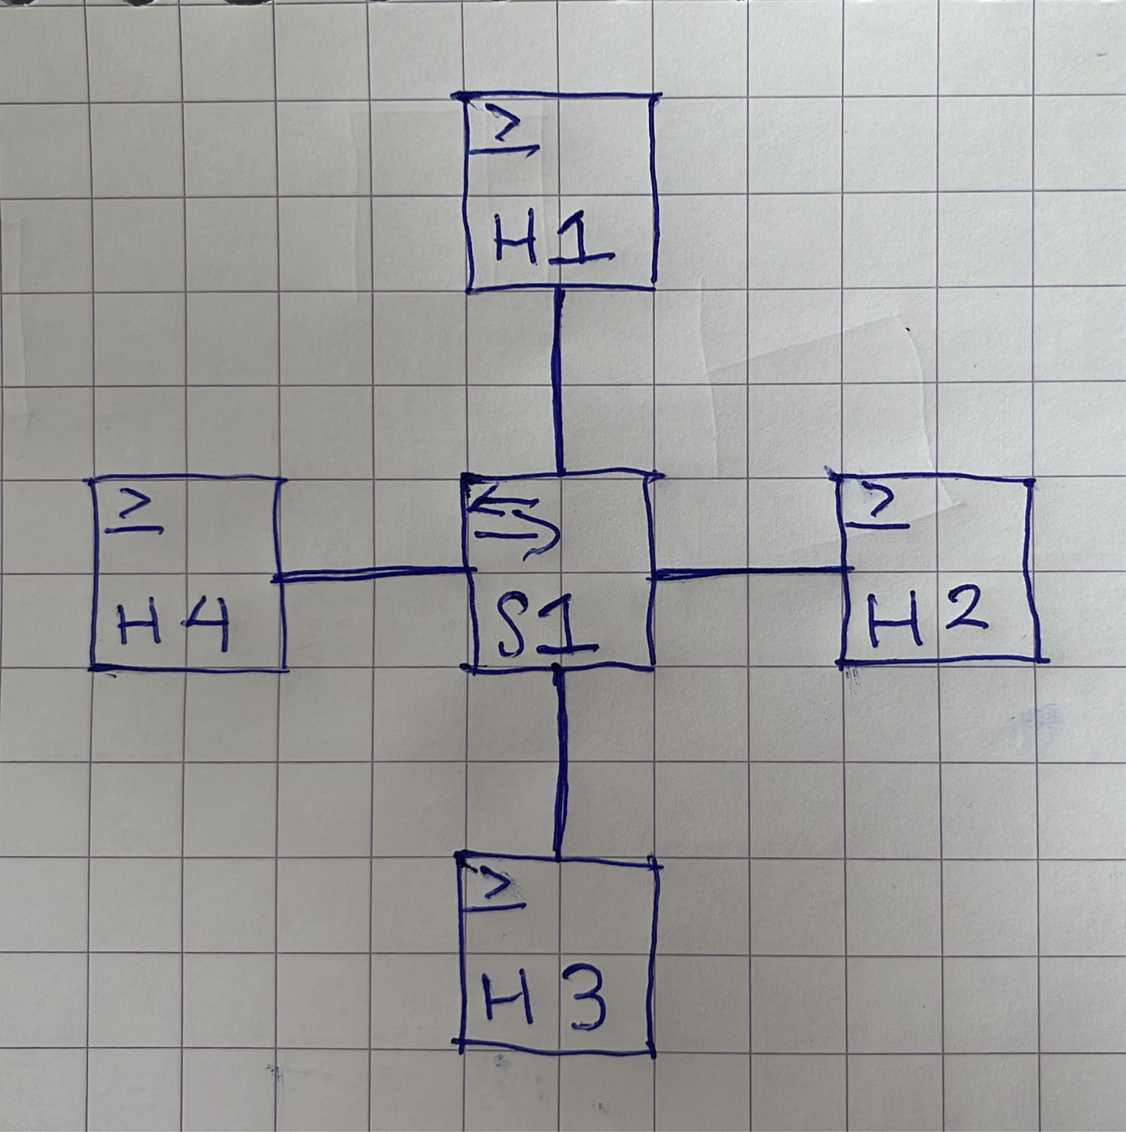 >
H1
>
H4
S1
>
H2
>
H3